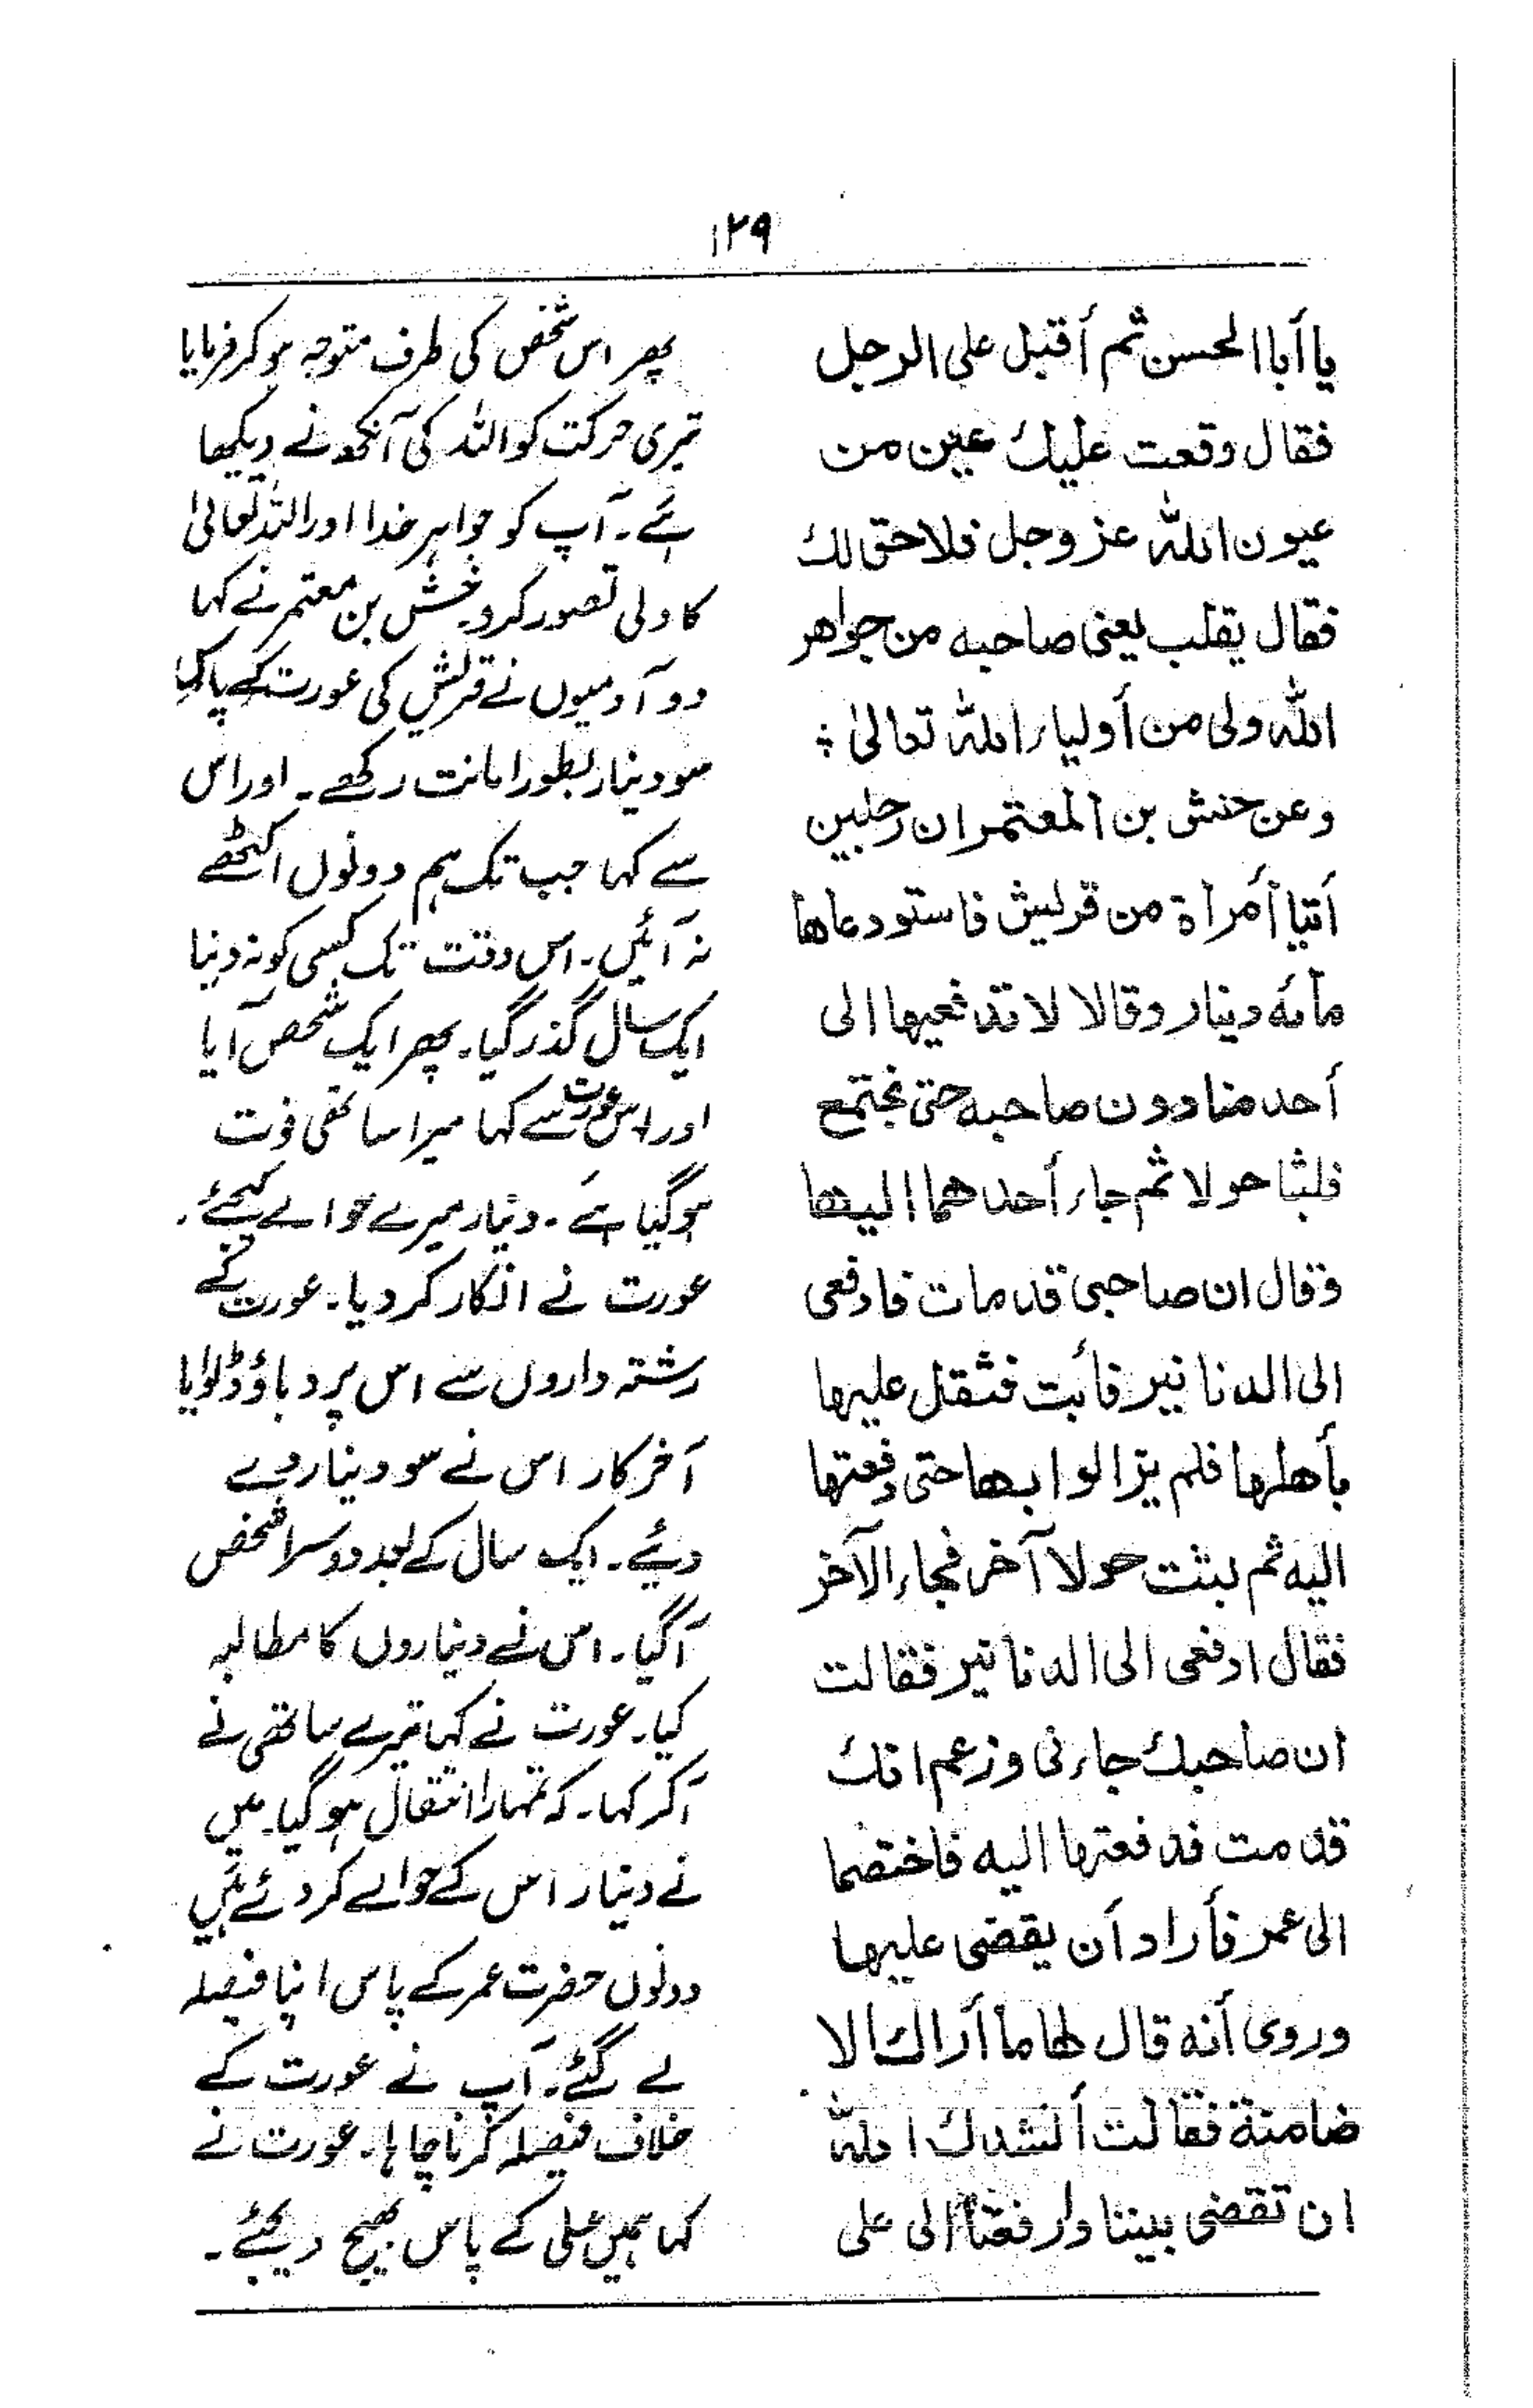 ۱۲۹
یا أبا الحسن ثم أقبل علی الرجل
فقال وقعت علیك عین من
عیون الله عز وجل فلا حق لك
فقال یقلب یعنی صاحبه من جواهر
الله ولی من أولیاء الله تعالیٰ
وعن حنش بن المعتمر ان رجلین
أتیا أمرأة من قریش فاستودعاها
مأئه دینار وقالا لا تدفعیها الی
أحد منا دون صاحبه حتی نجتمع
فلبثا حولا ثم جاء أحدهما الیها
وقال ان صاحبی قد مات فادفعی
الی الدنانیر فأبت فثقل علیها
بأهلها فلم یزالوا بها حتی دفعتها
الیه ثم لبثت حولا آخر فجاء الآخر
فقال ادفعی الی الدنانیر فقالت
ان صاحبك جاءنی وزعم انك
قد مت فدفعتها الیه فاختصما
الی عمر فأراد أن یقضی علیها
وروی أنه قال لها ما أراك الا
ضامنة فقالت أنشدك الله
ان تقضی بیننا وارفعنا الی علی
پھر اس شخص کی طرف متوجہ ہو کر فرمایا
تیری حرکت کو اللہ کی آنکھ نے دیکھا
ہے۔ آپ کو جواہر خدا اور اللہ تعالیٰ
کا ولی تصور کرو۔ خنش بن معتمر نے کہا
دو آدمیوں نے قریش کی عورت کے پاس
سو دینار بطور امانت رکھے۔ اور اس
سے کہا جب تک ہم دونوں اکٹھے
نہ آئیں۔ اس وقت تک کسی کو نہ دینا
ایک سال گذر گیا۔ پھر ایک شخص آیا
اور اس عورت سے کہا میرا ساتھی فوت
ہو گیا ہے۔ دینار میرے حوالے کیجئے۔
عورت نے انکار کر دیا۔ عورت کے
رشتہ داروں سے اس پر دباؤ ڈلوایا
آخر کار اس نے سو دینار دے
دیئے۔ ایک سال کے بعد دوسرا شخص
آگیا۔ اس نے دیناروں کا مطالبہ
کیا۔ عورت نے کہا تیرے ساتھی نے
آکر کہا۔ کہ تمہارا انتقال ہو گیا۔ میں
نے دینار اس کے حوالے کر دئے ہیں
دونوں حضرت عمر کے پاس اپنا فیصلہ
لے گئے۔ آپ نے عورت کے
خلاف فیصلہ کرنا چاہا۔ عورت نے
کہا ہمیں علی کے پاس بھیج دیجئے۔